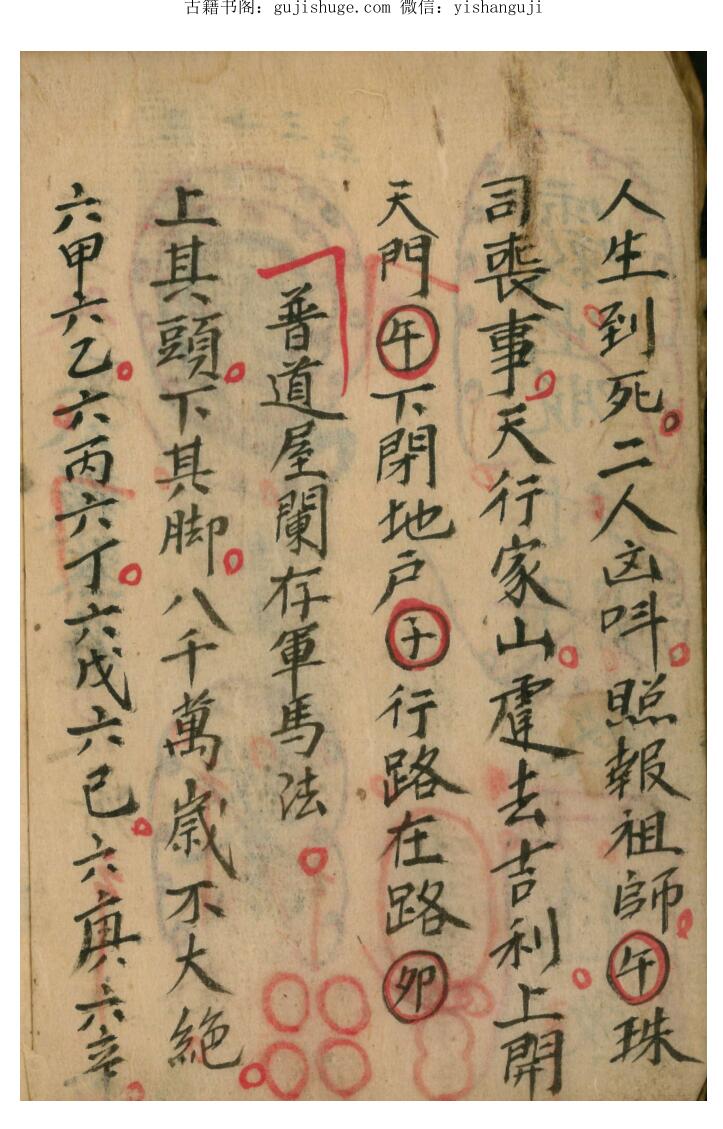 古籍书阁：gujishuge.com 微信：yishanguji
人生到死二人凶呌照報祖師午珠
司喪事天行家山霍去吉利上開
天門午下閉地户子行路在路卯
普道屋闌存軍馬法
上其頭下其脚八千萬歲不大絶
六甲六乙六丙六丁六戊六己六庚六辛